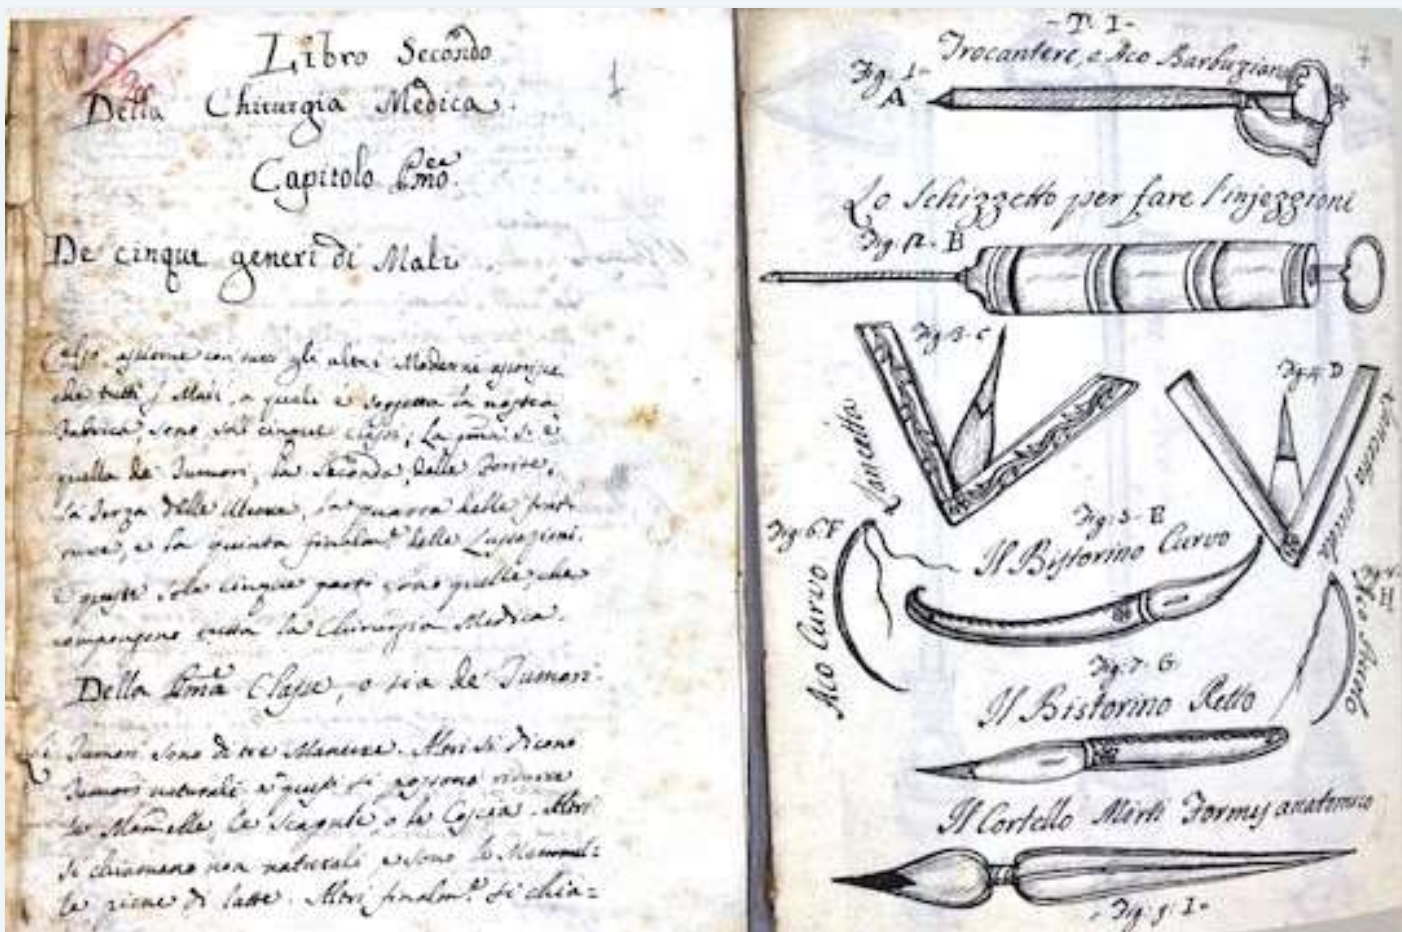 Libro Secondo
Della Chirurgia Medica.
Capitolo Pmo.
1
De cinque generi di Mali.
Celso, assieme con tutti gli altri Moderni
che tutti j Mali, a quali è soggetta la nostra
Fabrica, sono cinque Classi; La pma si è
quella de Tumori, la Seconda, delle Ferite,
la Terza delle Ulcere, la quarta delle frat-
ture, e la quinta finalmte delle Lussazioni.
E queste sole cinque parti sono quelle, che
compongono tutta la Chirurgia Medica.
Della Pma Classe, o sia de Tumori.
Li Tumori sono di tre Maniere. Altri si dicono
Tumori naturali e questi si possono ridurre
le Mamelle, le Scapule, o la Coscia. Altri
si chiamano non naturali, e sono le Mammel=
le piene di latte. Altri finalmte si chia=
- T. I -
Trocantere, o Aco Barbuziano
Fig. 1 -
A
Lo Schizzetto per fare l'injezzioni
Fig. 2. B
Fig. 3. C
Lancetta
Fig. 4. D
Lancetta piccola
Fig. 5 - E
Il Bistorino Curvo
Fig. 6. F
Aco Curvo
H
Fig. 7. G
Il Bistorino Retto
Il Cortello Mirti Formes anatomico
Fig. 9. I